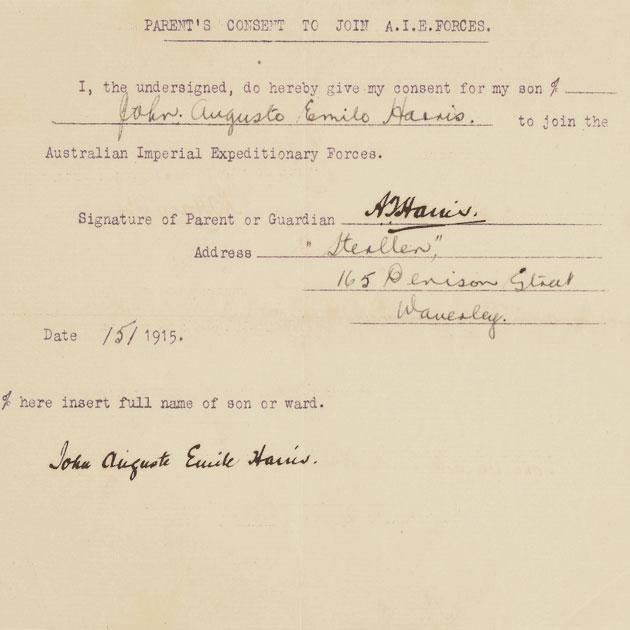 PARENT'S CONSENT TO JOIN A.I.E.FORCES.
I, the undersigned, do hereby give my consent for my son %
John. Augusto Emilo Harris. to join the
Australian Imperial Expeditionary Forces.
Signature of Parent or Guardian A Harris.
Address
165 Denison Street
Waverley.
Date /5/ 1915.
% here insert full name of son or ward.
John Auguste Emile Harris.